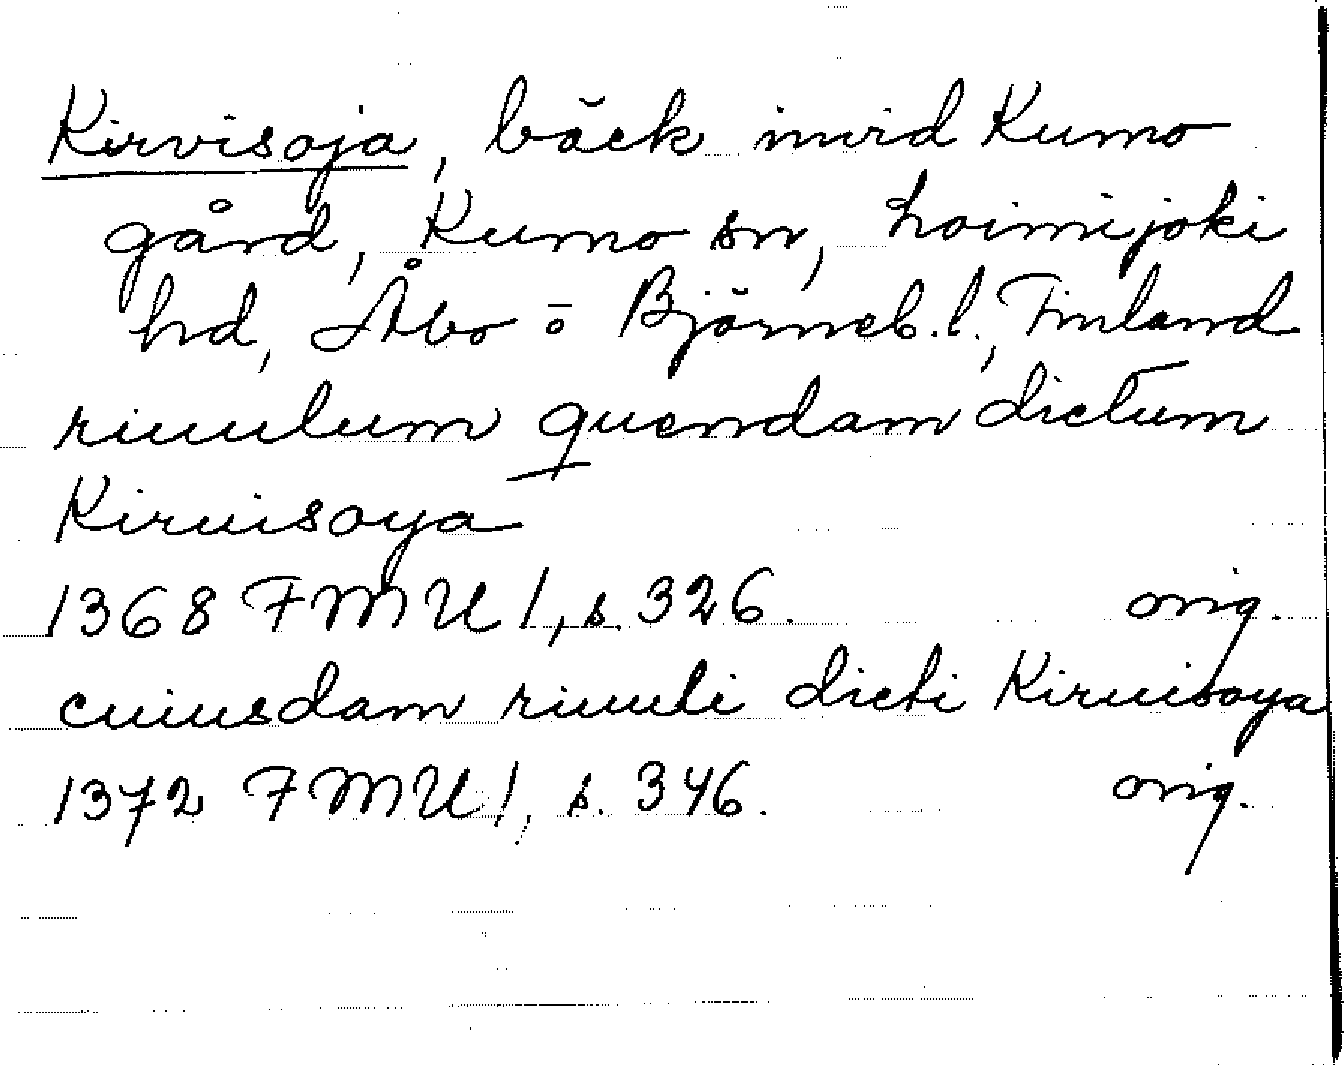 Kirvisoja, bäck invid Kumo
gård, Kumo sn, Loimijoki
hd, Åbo o Björneb. l., Finland
riuulum quendam dictum
Kiruisoya
1368 FMU 1, s. 326. orig.
cuiusdam riuuli dicti Kiruisoya
1372 FMU 1, s. 346. orig.